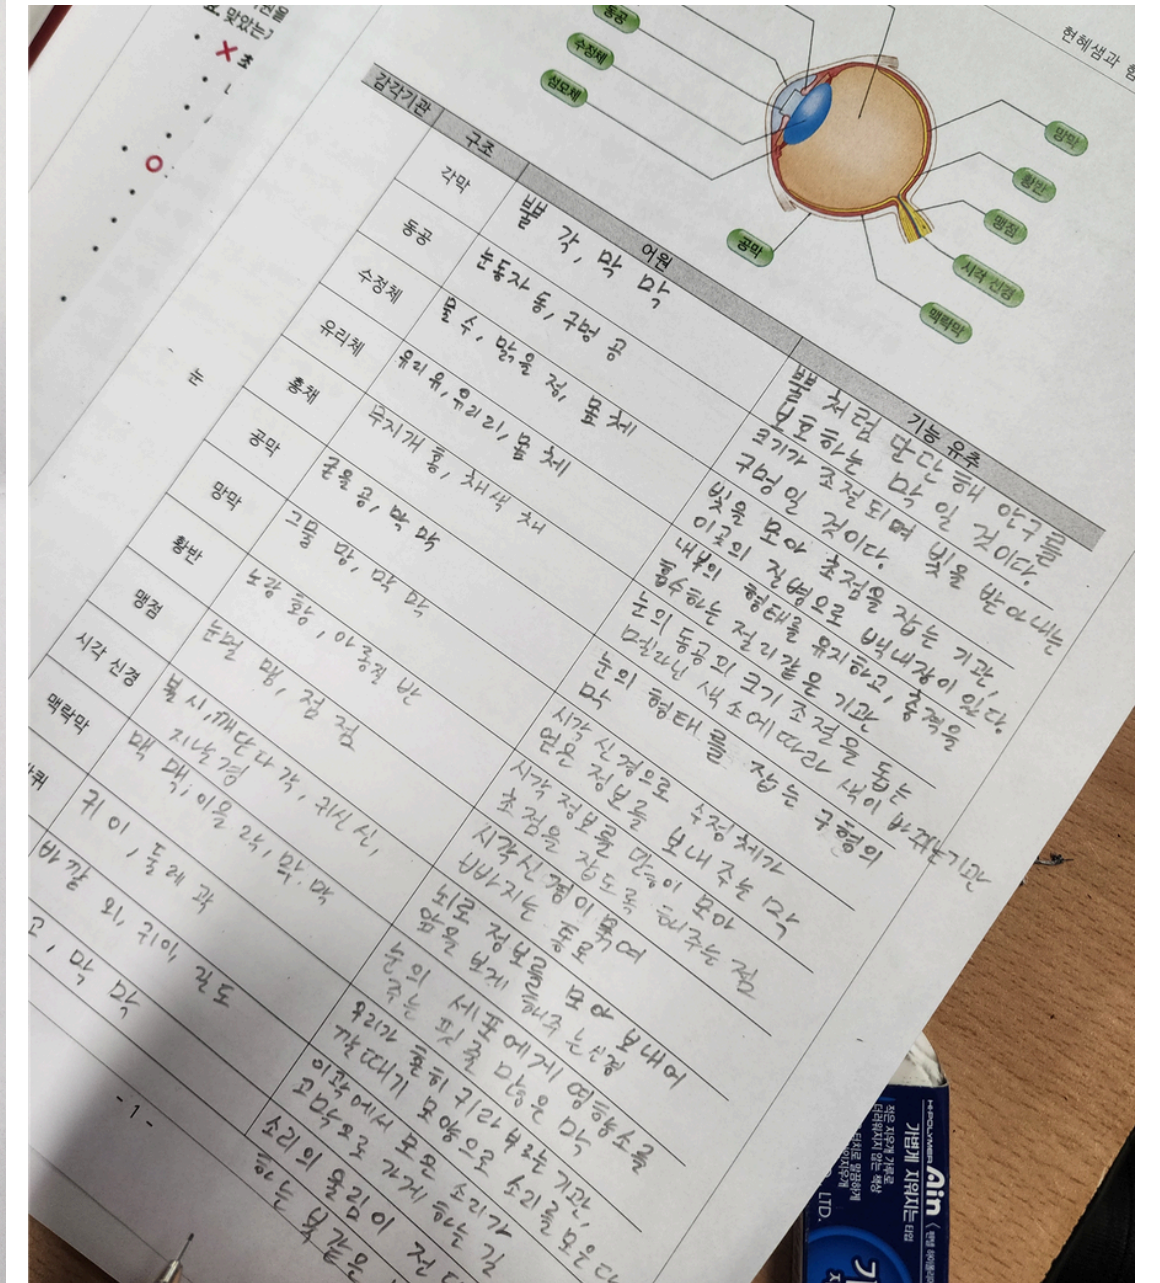 권을
요. 맞았는
현혜샘과 함
동공
수정체
섬모체
망막
황반
맹점
시각 신경
맥락막
공막
감각기관 구조 어원 기능 유추
눈
각막
뿔 각, 막 막
뿔처럼 단단해 안구를
보호하는 막 일 것이다.
동공
눈동자 동, 구멍 공
크기가 조절되며 빛을 받아내는
구멍일 것이다.
수정체
물 수, 맑을 정, 몸 체
빛을 모아 초점을 잡는 기관,
이곳의 질병으로 백내장이 있다.
유리체
유리 유, 유리 리, 몸 체
내부의 형태를 유지하고, 충격을
흡수하는 젤리같은 기관
홍채
무지개 홍, 채색 채
눈의 동공의 크기 조절을 돕는
멜라닌 색소에 따라 색이 바뀌는 기관
공막
굳을 공, 막 막
눈의 형태를 잡는 구형의
막
망막
그물 망, 막 막
시각 신경으로 수정체가
얻은 정보를 보내주는 막
황반
노랑 황, 아롱질 반
시각 정보를 많이 모아
초점을 잡도록 해주는 점
맹점
눈멀 맹, 점 점
시각 신경이 모여
빠지는 통로
시각 신경
볼 시, 깨닫다 각, 귀신 신,
지날 경
뇌로 정보를 모아 보내어
앞을 보게 해주는 신경
맥락막
맥 맥, 이을 락, 막 막
눈의 세포에게 영양소를
주는 핏줄 많은 막
퀴
귀 이, 둘레 곽
우리가 흔히 귀라 부르는 기관,
깔때기 모양으로 소리를 모은다
바깥 외, 귀 이, 길 도
이곽에서 모은 소리가
고막으로 가게 하는 길
고, 막 막
소리의 울림이
- 1 -
HI-POLYMER Ain
가볍게 지워지는 타입
적은 지우개 가루로
더러워지지 않는 책상
LTD.